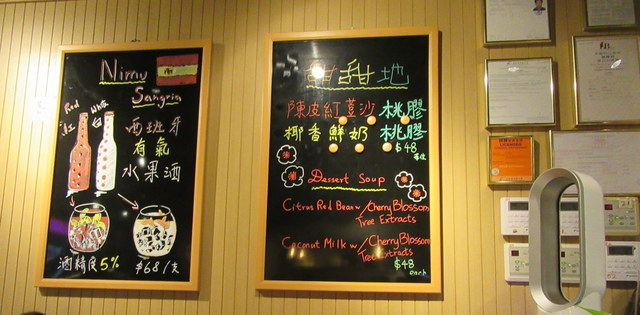 Nimu
Sangria
Red
紅
White
白
西班牙
有氣
水果酒
酒精度5%
$68/支
甜甜地
陳皮紅荳沙 桃膠
椰香鮮奶 桃膠
$48
每位
Dessert Soup
Citrus Red Bean w/ Cherry Blossom
Tree Extracts
Coconut Milk w/ Cherry Blossom
Tree Extracts
$48
each